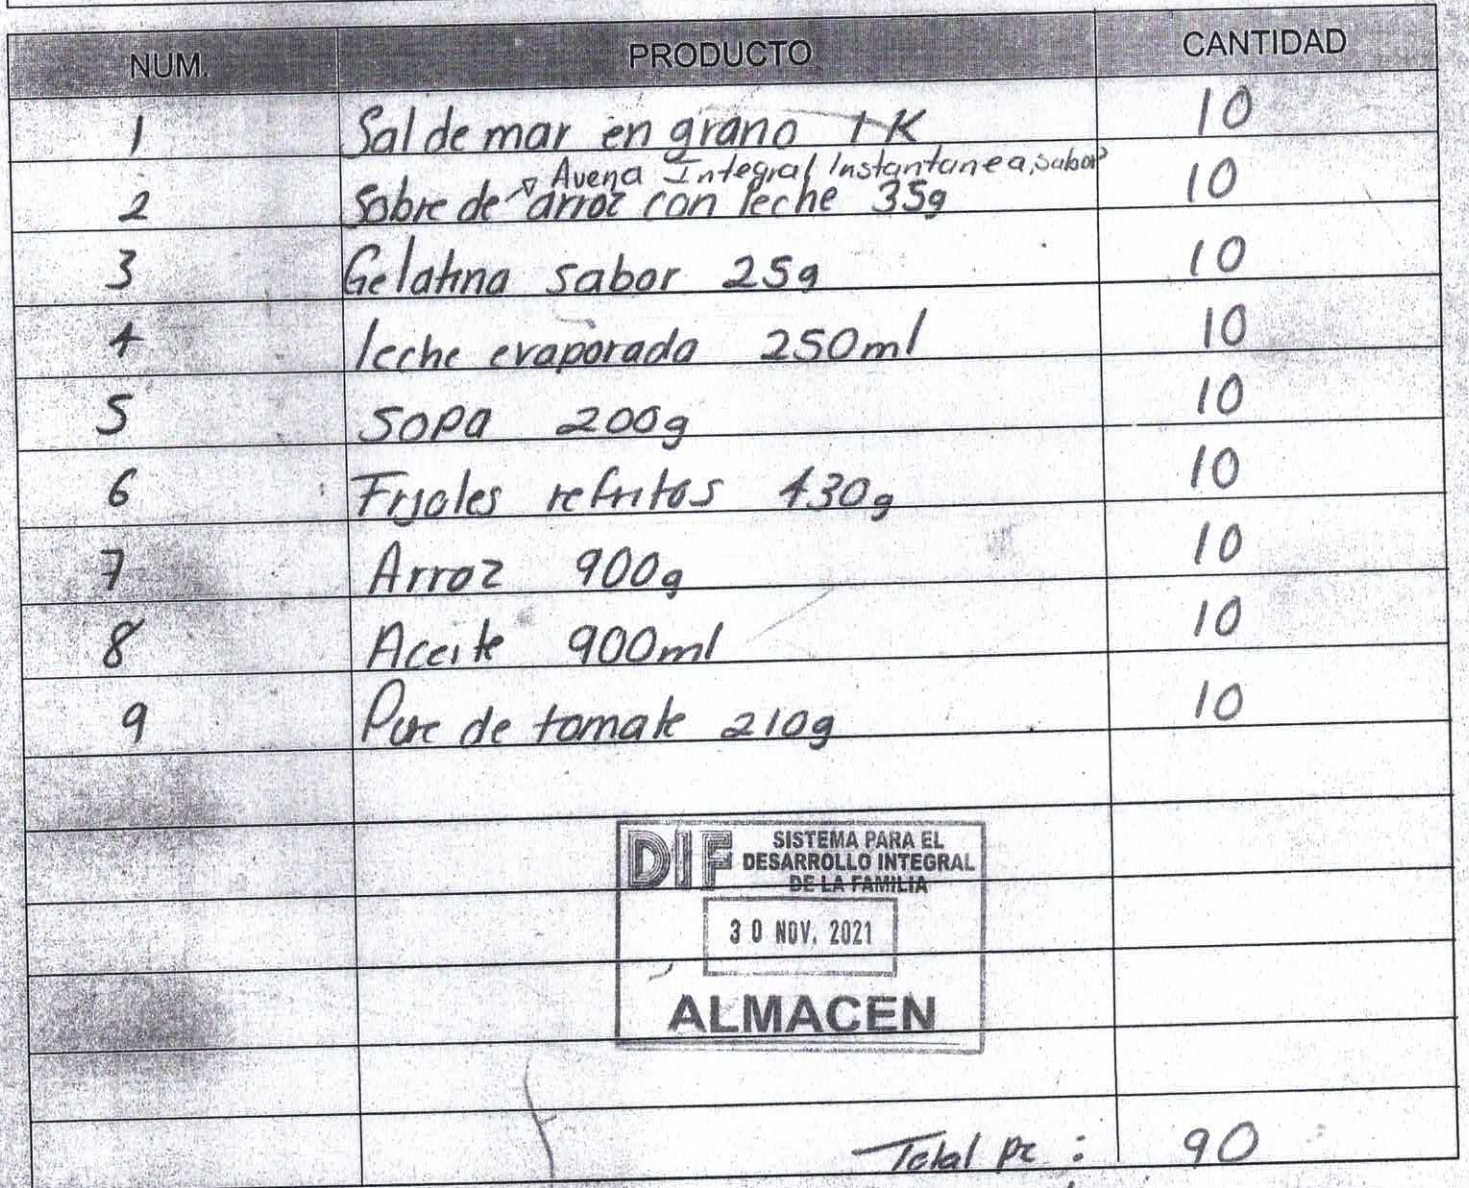 NUM. PRODUCTO CANTIDAD
1 Sal de mar en grano 1 K 10
Avena Integral Instantanea, sabor
2 Sobre de arroz con leche 35g 10
3 Gelatina sabor 25g 10
4 leche evaporada 250ml 10
5 SOPA 200g 10
6 Frijoles refritos 430g 10
7 Arroz 900g 10
8 Aceite 900ml 10
9 Pure de tomate 210g 10
DIF SISTEMA PARA EL
DESARROLLO INTEGRAL
DE LA FAMILIA
30 NOV. 2021
ALMACEN
Total pz : 90